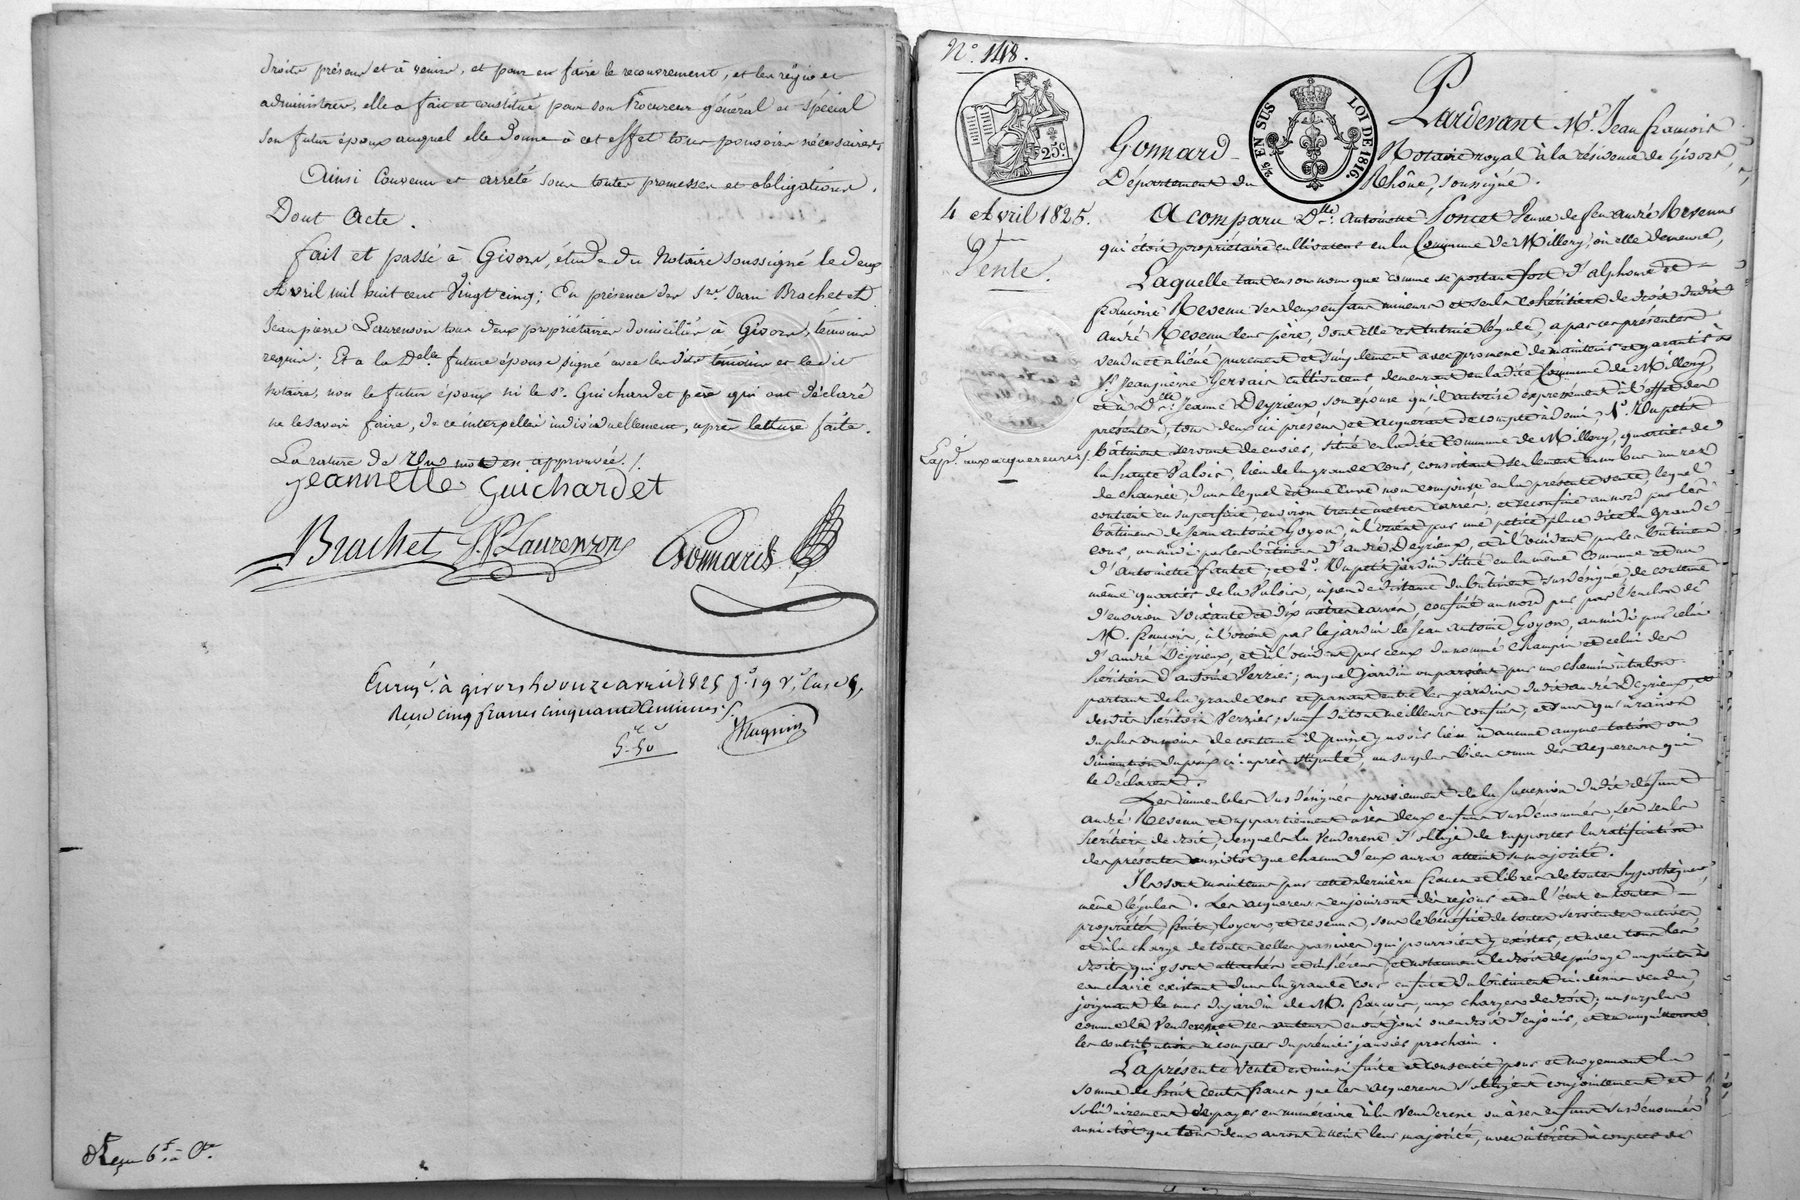 droits présens et à venir, et pour en faire le recouvrement, et les régir et
administrer, elle a fait et constitué pour son Procureur général et spécial
son futur époux auquel elle donne à cet effet tous pouvoirs nécessaires.
Ainsi Convenu et arrêté sous toutes promesses et obligations.
Dont Acte.
fait et passé à Givors, étude du Notaire soussigné le deux
Avril mil huit cent Vingt cinq; En présence des Srs. Jean Brachet et
Jean pierre Laurenson tous deux propriétaires domiciliés à Givors, témoins
requis; Et a la Delle. future épouse signé avec les dits témoins et le dit
notaire, non le futur époux ni le Sr. Guichardet père qui ont déclaré
ne le savoir faire, de ce interpellés individuellement, après lecture faite.
La rature de Un mot est approuvée./.
jeannette Guichardet
Brachet J.P. Laurenson Gonnard
Enregé. à givors le onze avril 1825 fo. 19 Vo. Case 5,
Reçu cinq francs cinquante Centimes
5.50 Magnin
Reçu 6f.
No. 148.
25 EN SUS LOI DE 1816.
25c.
Pardevant Me. Jean François
Gonnard Notaire royal à la résidence de Givors,
Département du Rhône, soussigné.
4 Avril 1825.
Vente.
A comparu Dlle. Antoinette Poncet Veuve de feu André Reseun
qui étoit propriétaire cultivateur en la Commune de Millery, où elle demeure,
Laquelle tant en son nom que comme se portant fort d'alphonse et
françoise Reseun ses deux enfans mineurs et seuls cohéritiers de droit dudit
André Reseun leur père, dont elle est tutrice légale, a par ces présentes
vendu et aliéné purement et simplement avec promesse de maintenir et garantir à
Sr. Jean pierre Gervais cultivateur demeurant en la dite Commune de Millery,
et à Dlle. Jeanne Deyrieux son épouse qu'il autorise expressément à l'effet des
présentes, tous deux ici présens et acquérant de compte à demi, 1o. Un petit
bâtiment servant de cuvier, situé en la dite Commune de Millery, quartier de
la haute Valois, lieu de la grande cour, consistant seulement en un bas au rez
de chaussée, dans lequel est une cuve non comprise en la présente vente, lequel
contient en superficie, environ trente mètres carrés, et se confine au nord par les
bâtimens de Jean Antoine Goyon, à l'orient par une petite place dite la Grande
cour, au midi par les bâtimens d'André Deyrieux, et à l'occident par les bâtimens
d'Antoinette fantet; et 2o. Un petit jardin situé en la même Commune et au
même quartier de la Valois, à peu de distance du bâtiment sus désigné, de contenue
d'environ soixante et dix mètres carrés, confiné au nord par l'enclos de
M. françois, à l'orient par le jardin de Jean Antoine Goyon, au midi par celui
d'André Deyrieux, et à l'occident par ceux du nommé Champin et celui des
héritiers d'Antoine Verzier; auquel jardin on parvient par un chemin à talon
partant de la grande cour et passant entre les jardins dudit André Deyrieux, et
desdits héritiers Verzier; sauf du tout meilleurs confins, et sans qu'à raison
du plus ou moins de contenue il puisse y avoir lieu à aucune augmentation ou
diminution du prix ci-après stipulé, au surplus bien connu des acquéreurs qui
le déclarent.
Les immeubles sus désignés proviennent de la succession dudit défunt
André Reseun et appartiennent à ses deux enfans sus dénommés ses seuls
héritiers de droit, desquels la Venderesse s'oblige de rapporter la ratification
des présentes aussitôt que chacun d'eux aura atteint sa majorité.
Ils sont maintenus par cette dernière francs et libres de toutes hypothèques,
même légales. Les acquéreurs en jouiront dès ce jour et en l'état en toutes
propriétés, fruits, loyers, et revenus, sous le bénéfice de toutes servitudes actives,
et à la charge de toutes celles passives qui pourroient y exister, et avec tous les
droits qui y sont attachés et inhérens et notamment le droit de puisage au puits à
eau claire existant dans la grande cour en face du bâtiment ci-dessus vendu,
joignant le mur du jardin de M. françois, aux charges de droit; au surplus
comme la Venderesse et ses auteurs en ont joui ou en droit d'en jouir, et en acquitteront
les contributions à compter du premier janvier prochain.
La présente Vente est ainsi faite et consentie pour et moyennant la
somme de huit cents francs que les acquéreurs s'obligent conjointement et
solidairement de payer en numéraire à la Venderesse ou à ses enfans sus dénommés
aussitôt que tous deux auront atteint leur majorité, avec intérêts à compter de